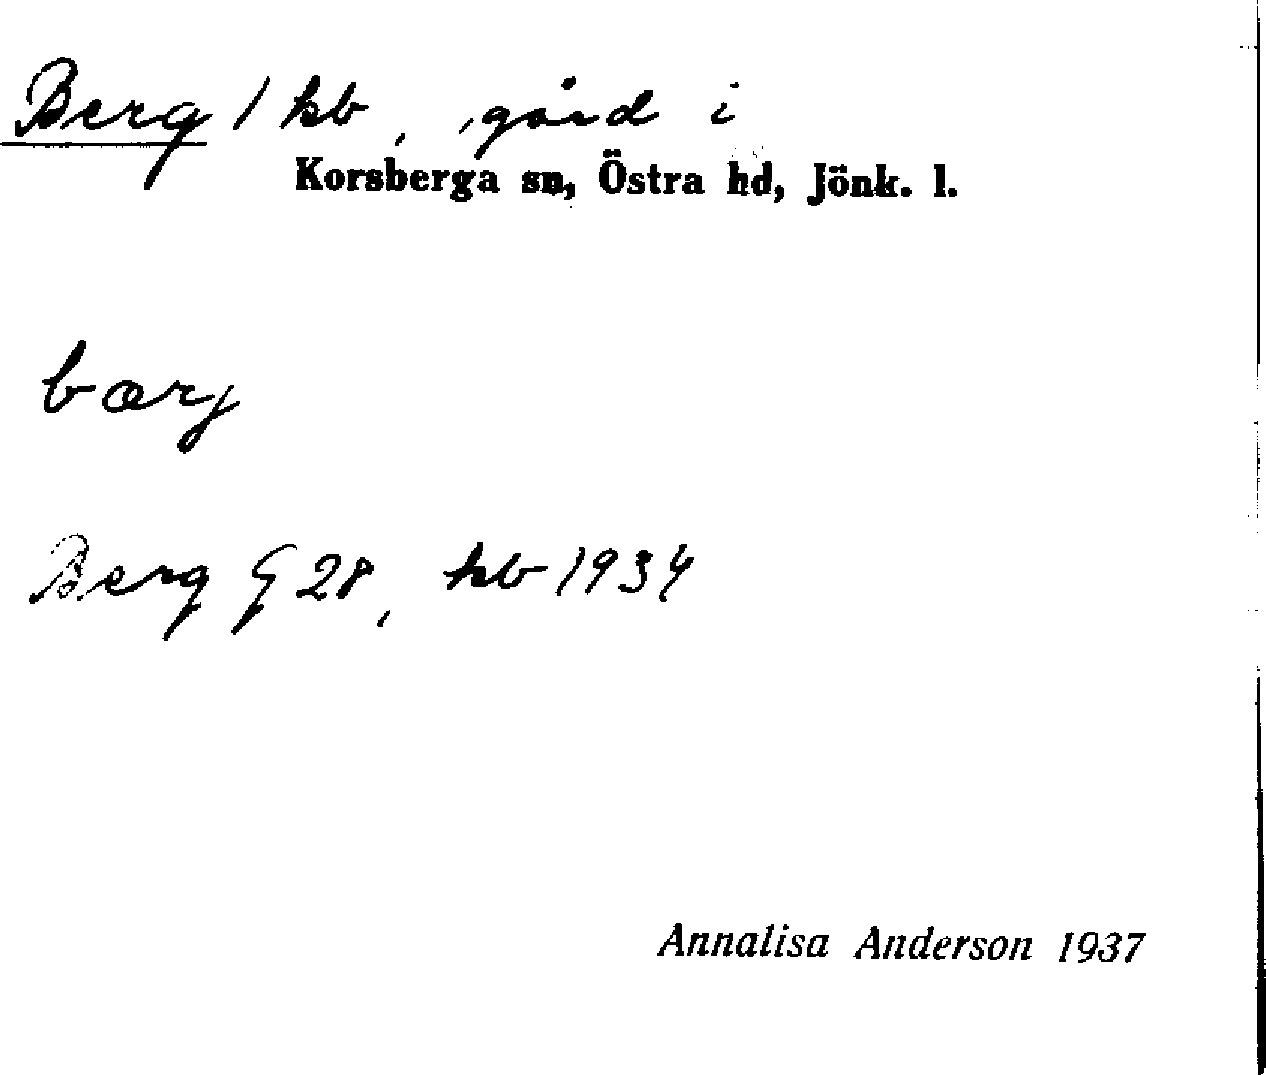 Berg / kb, gård i
Korsberga sn, Östra hd, Jönk. l.
bærj
Berg G 28, kb 1934
Annalisa Anderson 1937